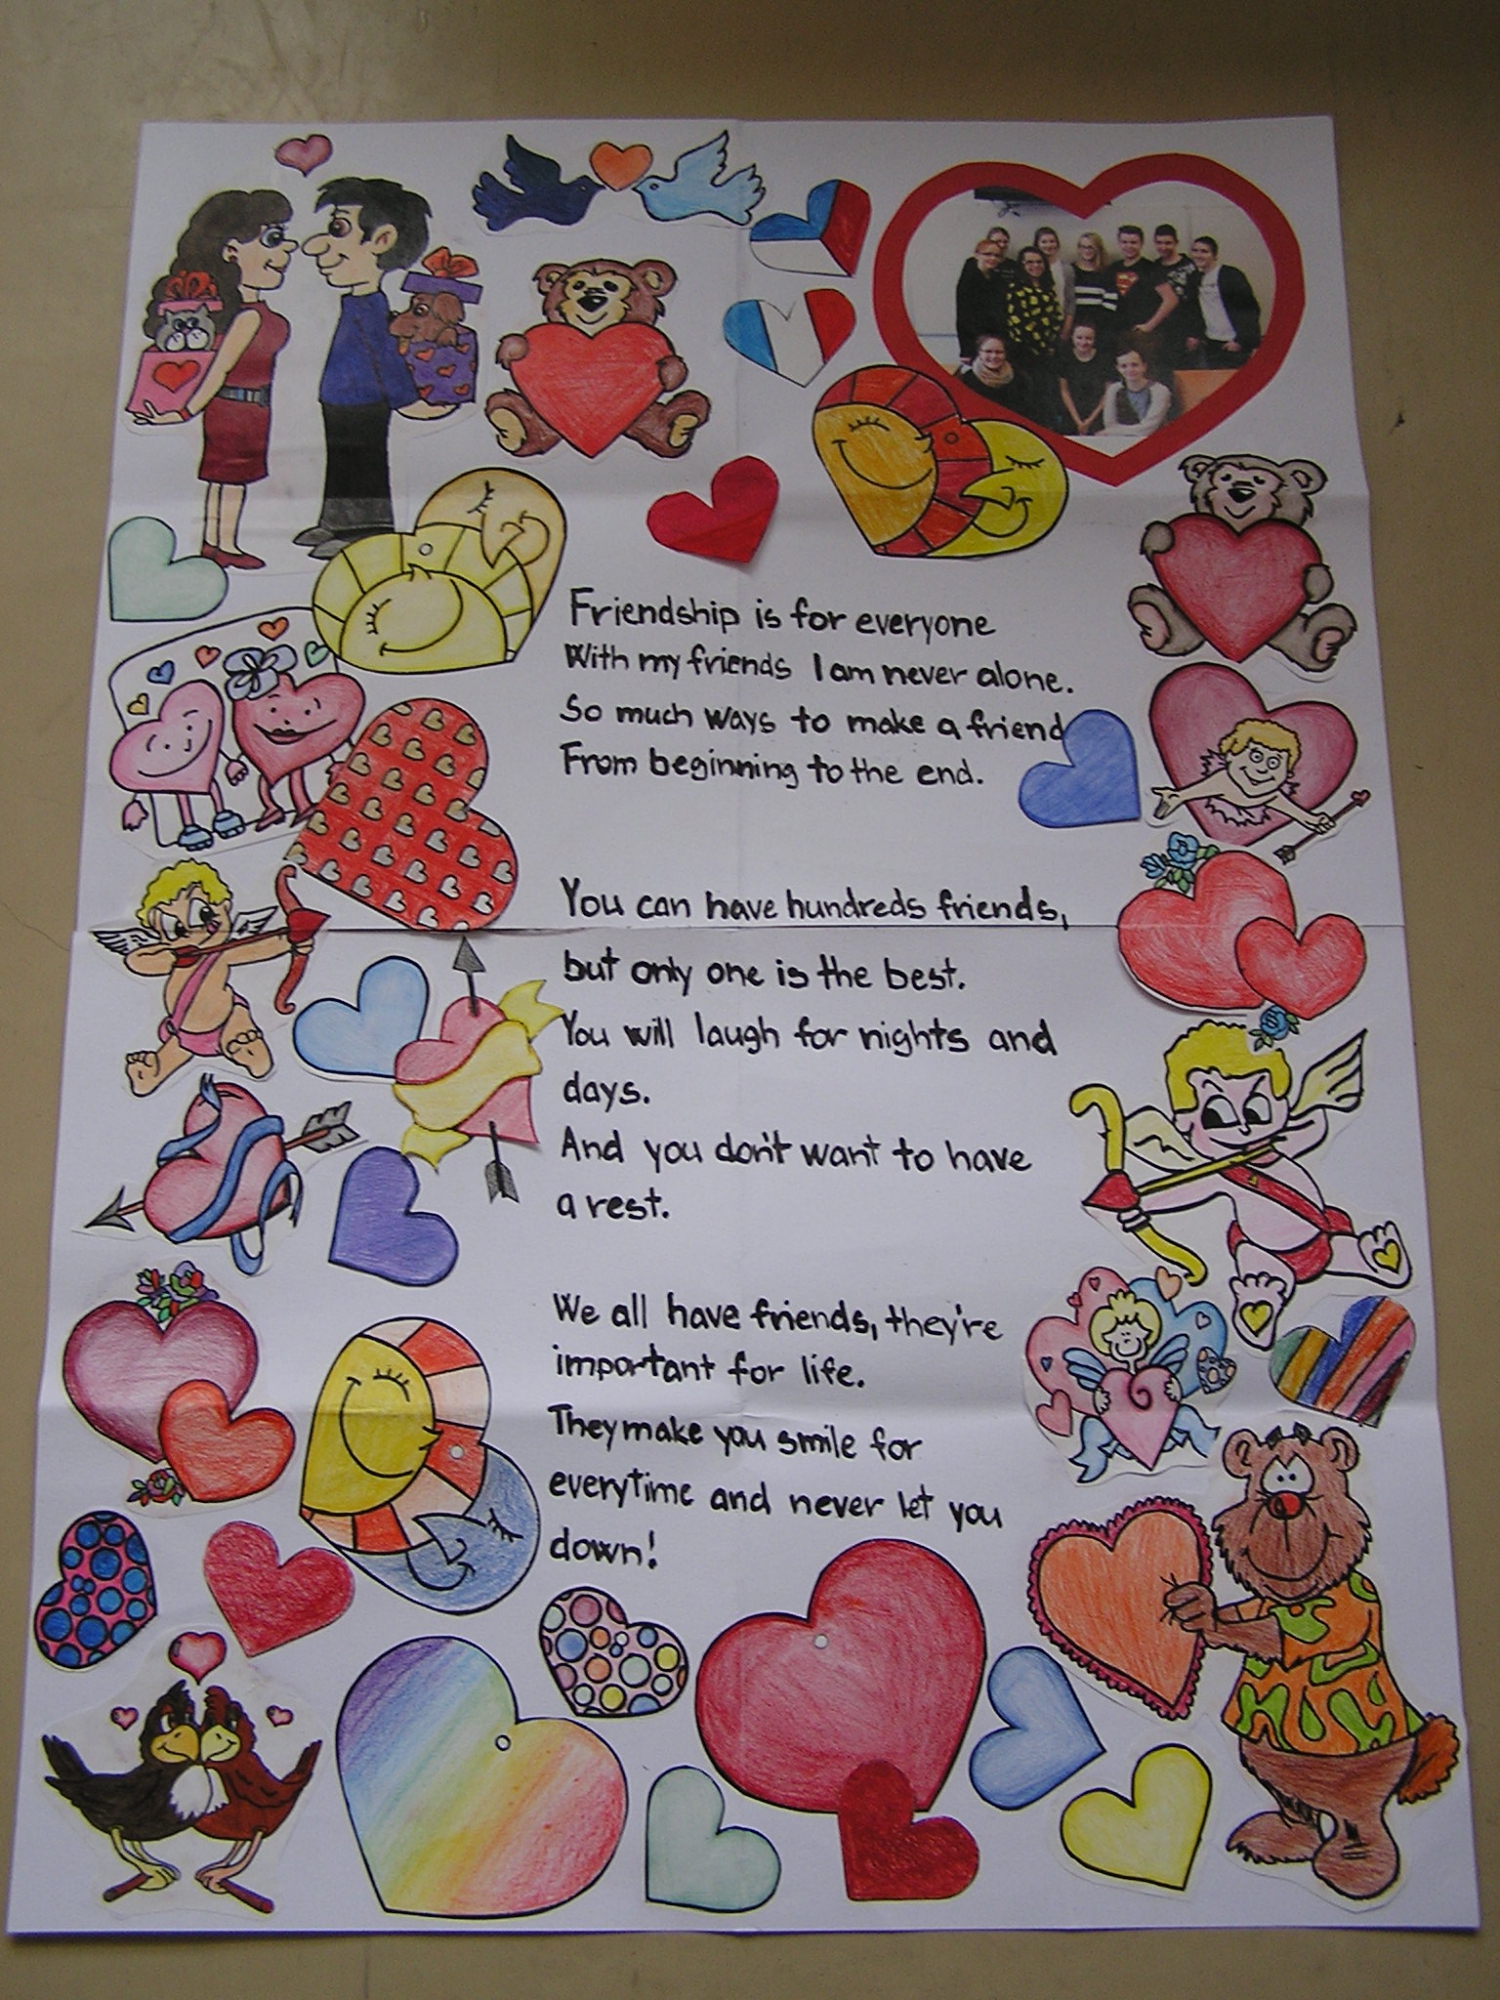 Friendship is for everyone
With my friends I am never alone.
So much ways to make a friend
From beginning to the end.
You can have hundreds friends,
but only one is the best.
You will laugh for nights and
days.
And you don't want to have
a rest.
We all have friends, they're
important for life.
They make you smile for
everytime and never let you
down!